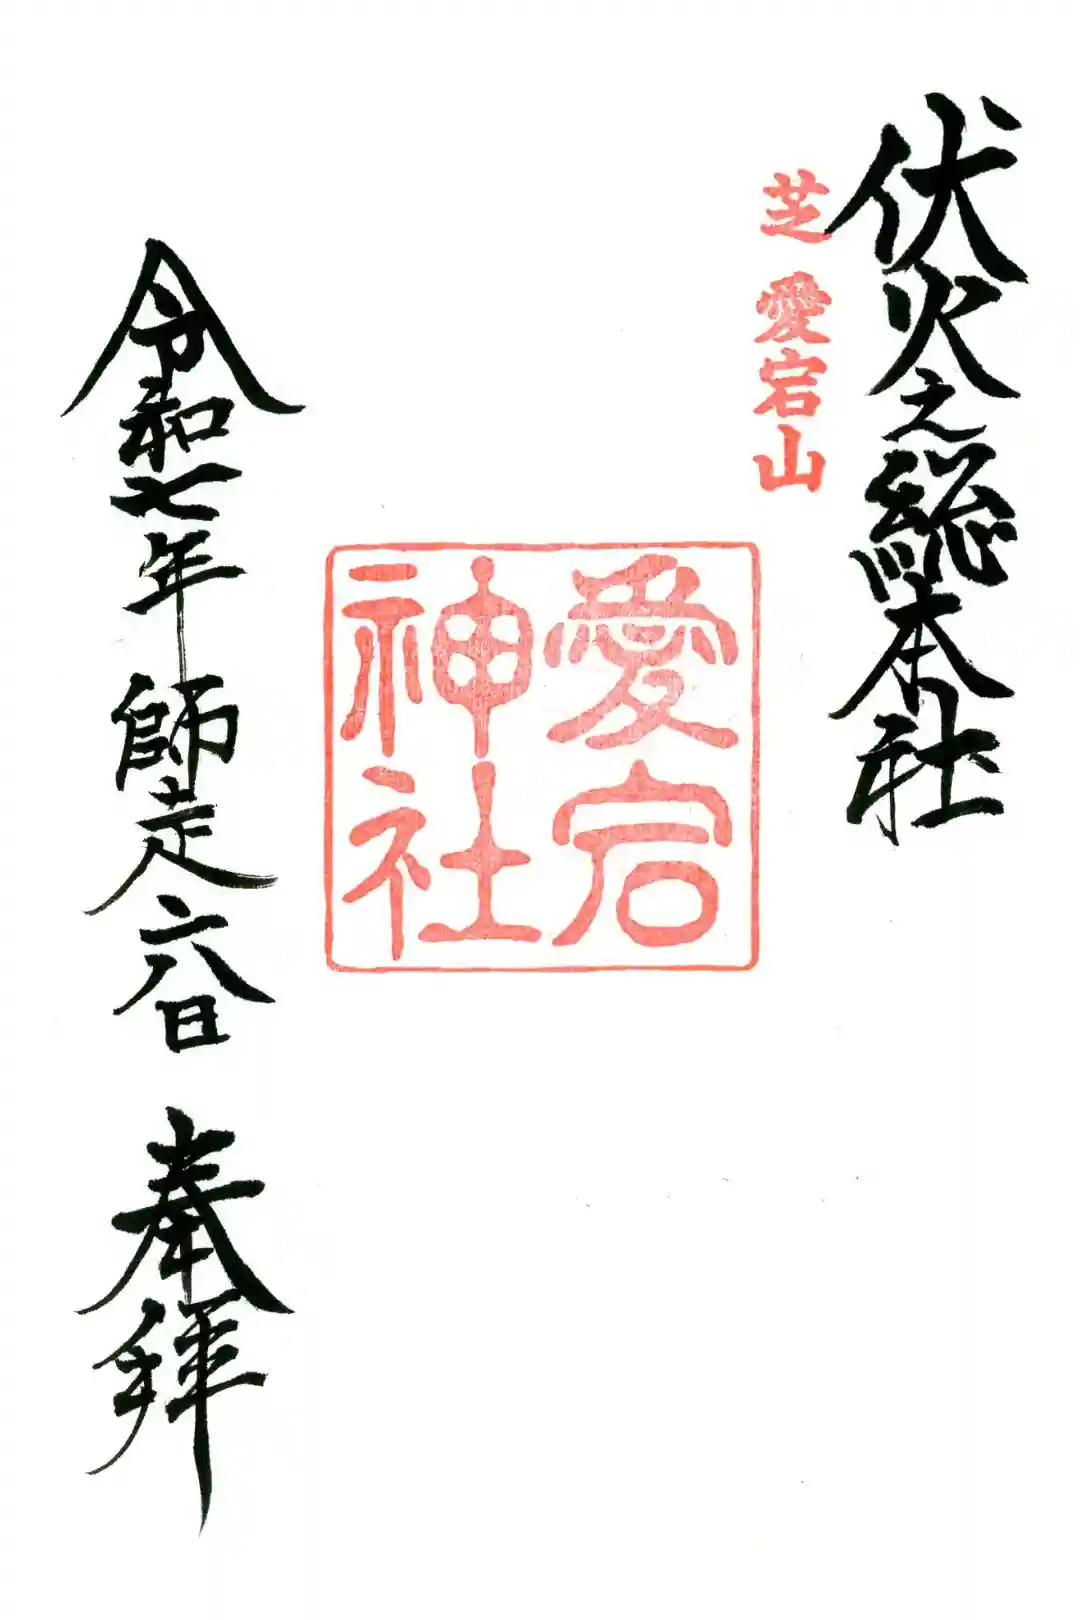 伏火之總本社
芝 愛宕山
愛宕
神社
令和七年 師走六日 奉拝